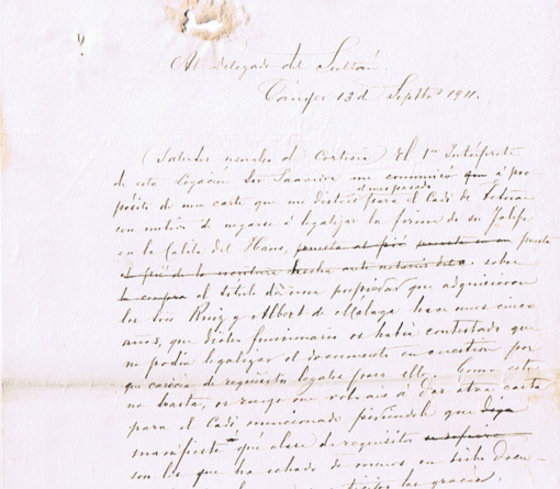 Al delegado del Sultán.
Tánger 13 de Septbre 1911.
(Saludos usuales de cortesía El 1er Intérprete
de esta Legación Sor Saavedra me comunicó que á pro-
el mes pasado
pósito de una carte que me disteis para el Cadí de Tetuán
con motivo de negarse á legalizar la firma de su Jalifa
en la Cabila del Haus, puesta al pié puesta en un puesta
al pié de la escritura hecha ante notarios de sobre
la compra el título de una propiedad que adquirieron
los Sres Ruiz y Albert de Málaga hace unos cinco
años, que dicho funcionario os había contestado que
no podía legalizar el documento en cuestión por
que carecía de requisitos legales para ello. Como esto
no basta, os ruego me volvais á dar otra carta
para el Cadí mencionado pidiéndole que diga
manifieste qué clase de requisitos se refiere
son los que ha echado de menos en dicho docu-
las gracias,